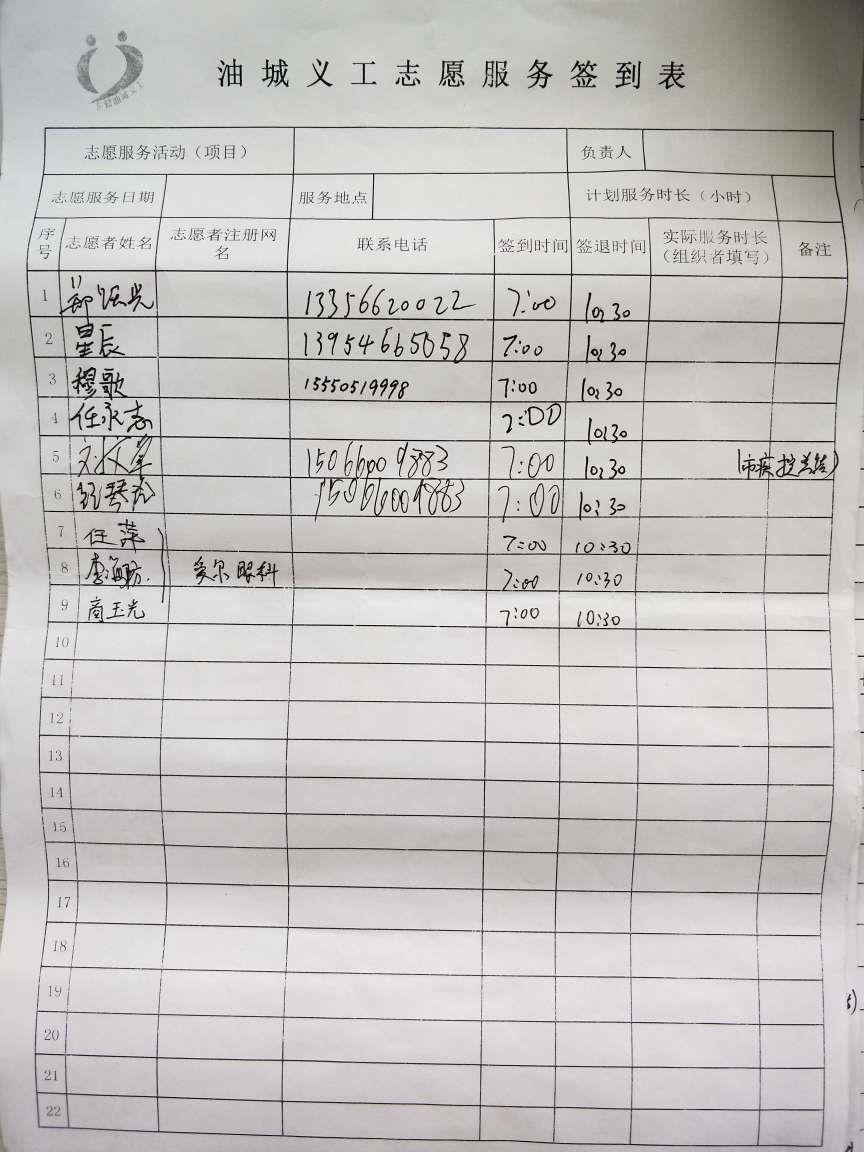 油城义工志愿服务签到表
志愿服务活动（项目） 负责人
志愿服务日期 服务地点 计划服务时长（小时）
序号 志愿者姓名 志愿者注册网名 联系电话 签到时间 签退时间 实际服务时长（组织者填写） 备注
1 13356620022 7:00 10:30
2 星辰 13954665058 7:00 10:30
3 穆歌 15550519998 7:00 10:30
4 任永志 7:00 10:30
5 15066009883 7:00 10:30
6 15066009883 7:00 10:30
7 任萍 7:00 10:30
8 李海防 爱尔眼科 7:00 10:30
9 商玉光 7:00 10:30
10
11
12
13
14
15
16
17
18
19
20
21
22